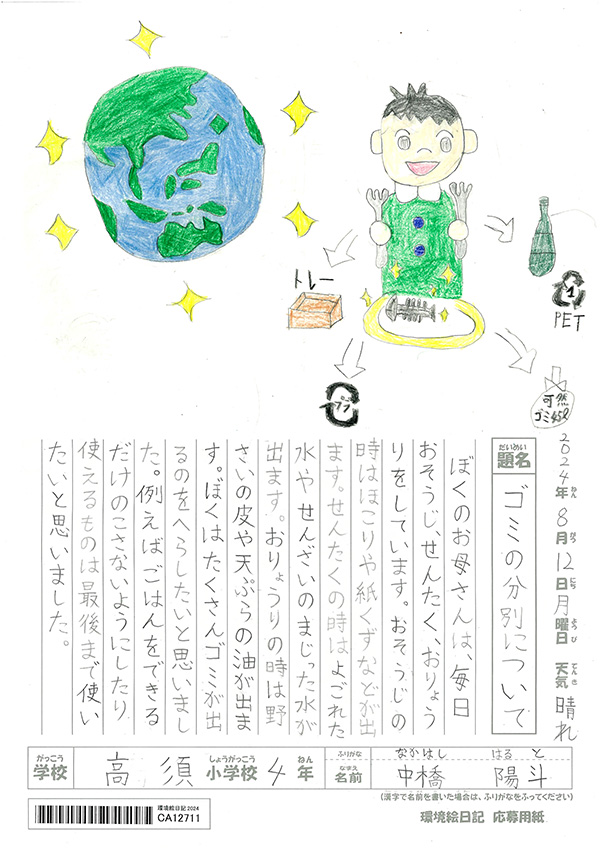 トレー
1
PET
プラ
可然
ゴミ45ℓ
2024年ねん8月がつ12日にち月曜日ようび 天気てんき 晴れ
題名だいめい ゴミの分別について
ぼくのお母さんは、毎日
おそうじ、せんたく、おりょう
りをしています。おそうじの
時はほこりや紙くずなどが出
ます。せんたくの時はよごれた
水やせんざいのまじった水が
出ます。おりょうりの時は野
さいの皮や天ぷらの油が出ま
す。ぼくはたくさんゴミが出
るのをへらしたいと思いまし
た。例えばごはんをできる
だけのこさないようにしたり
使えるものは最後まで使い
たいと思いました。
がっこう
学校 高須 しょうがっこう 小学校 4 ねん 年
ふりがな なかはし はると
なまえ 名前 中橋 陽斗
(漢字で名前を書いた場合は、ふりがなをふってください)
環境絵日記2024
CA12711
環境絵日記 応募用紙